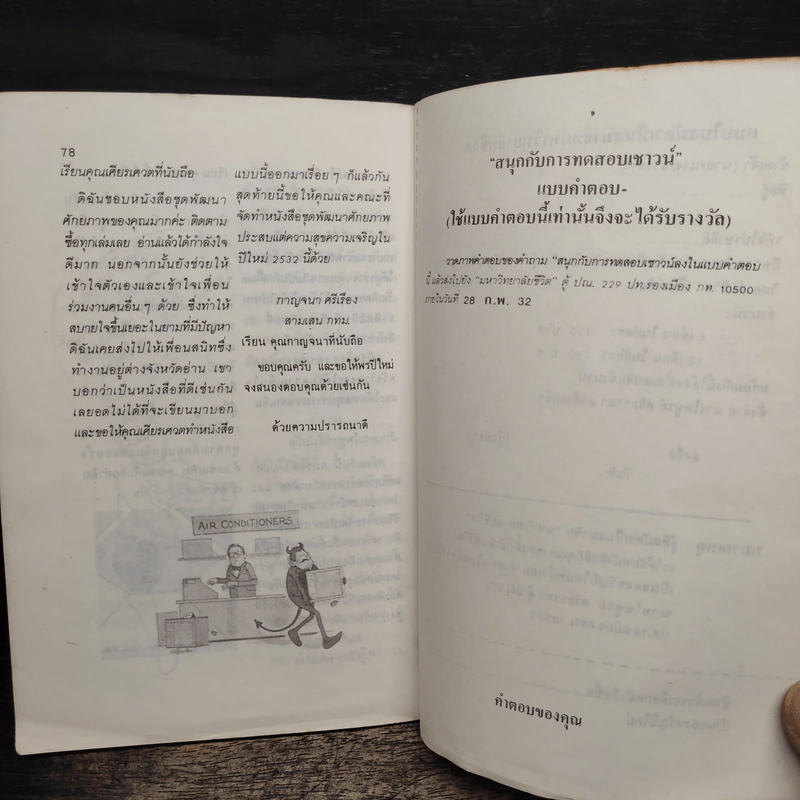 78
เรียนคุณเศียรเศวตที่นับถือ
ดิฉันชอบหนังสือชุดพัฒนา
ศักยภาพของคุณมากค่ะ ติดตาม
ซื้อทุกเล่มเลย อ่านแล้วได้กำลังใจ
ดีมาก นอกจากนั้นยังช่วยให้
เข้าใจตัวเองและเข้าใจเพื่อน
ร่วมงานคนอื่นๆ ด้วย ซึ่งทำให้
สบายใจขึ้นเยอะในยามที่มีปัญหา
ดิฉันเคยส่งไปให้เพื่อนสนิทซึ่ง
ทำงานอยู่ต่างจังหวัดอ่าน เขา
บอกว่าเป็นหนังสือที่ดีเช่นกัน
เลยอดไม่ได้ที่จะเขียนมาบอก
และขอให้คุณเศียรเศวตทำหนังสือ
แบบนี้ออกมาเรื่อยๆ ก็แล้วกัน
สุดท้ายนี้ขอให้คุณและคณะที่
จัดทำหนังสือชุดพัฒนาศักยภาพ
ประสบแต่ความสุขความเจริญใน
ปีใหม่ 2532 นี้ด้วย
กาญจนา ศรีเรือง
สามเสน กทม.
เรียน คุณกาญจนาที่นับถือ
ขอบคุณครับ และขอให้พรปีใหม่
จงสนองตอบคุณด้วยเช่นกัน
ด้วยความปรารถนาดี
AIR CONDITIONERS
"สนุกกับการทดสอบเชาวน์"
แบบคำตอบ-
(ใช้แบบคำตอบนี้เท่านั้นจึงจะได้รับรางวัล)
วาดภาพคำตอบของคำถาม "สนุกกับการทดสอบเชาวน์ลงในแบบคำตอบ
นี้ แล้วส่งไปยัง "มหาวิทยาลัยชีวิต" ตู้ ปณ. 229 ปท.รองเมือง กท. 10500
ภายในวันที่ 28 ก.พ. 32
คำตอบของคุณ